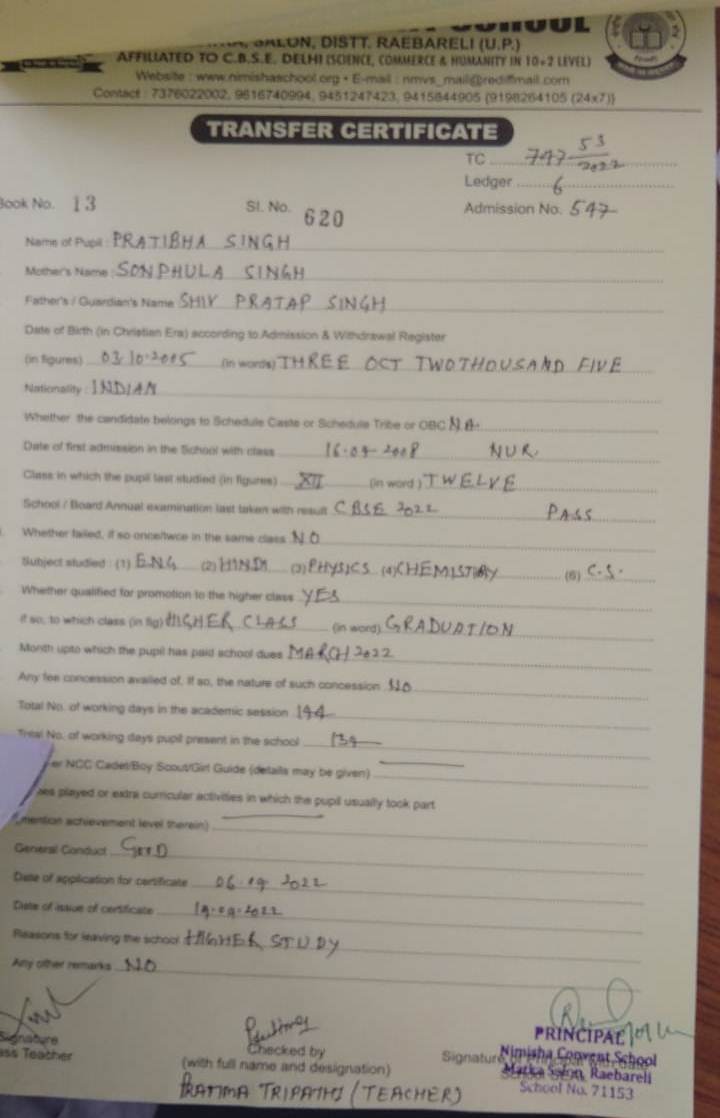 SCHOOL
SALON, DISTT. RAEBARELI (U.P.)
AFFILIATED TO C.B.S.E. DELHI (SCIENCE, COMMERCE & HUMANITY IN 10+2 LEVEL)
Website : www.nimishaschool.org • E-mail : nmvs_mail@rediffmail.com
Contact : 7376022002, 9616740994, 9451247423, 9415844905 (9198264105 (24x7))
TRANSFER CERTIFICATE
TC 747 53/2022
Ledger 6
Book No. 13 Sl. No. 620 Admission No. 547
Name of Pupil : PRATIBHA SINGH
Mother's Name : SONPHULA SINGH
Father's / Guardian's Name SHIV PRATAP SINGH
Date of Birth (in Christian Era) according to Admission & Withdrawal Register
(in figures) 03.10.2005 (in words) THREE OCT TWOTHOUSAND FIVE
Nationality : INDIAN
Whether the candidate belongs to Schedule Caste or Schedule Tribe or OBC NA.
Date of first admission in the School with class 2008 NUR.
Class in which the pupil last studied (in figures) XII (in word) TWELVE
School / Board Annual examination last taken with result CBSE 2022 PASS
Whether failed, if so once/twce in the same class NO
Subject studied : (1) ENG (2) HINDI (3) PHYSICS (4) CHEMISTRY (6) C.S.
Whether qualified for promotion to the higher class YES
if so, to which class (in fig) HIGHER CLASS (in word) GRADUATION
Month upto which the pupil has paid school dues MARCH 2022
Any fee concession availed of, If so, the nature of such concession NO
Total No. of working days in the academic session 144
Total No. of working days pupil present in the school
NCC Cadet/Boy Scout/Girl Guide (details may be given)
played or extra curricular activities in which the pupil usually took part
mention achievement level therein)
General Conduct GOOD
Date of application for certificate 2022
Date of issue of certificate 2022
Reasons for leaving the school HIGHER STUDY
Any other remarks NO
Signature Checked by Signature of Principal with date
Class Teacher (with full name and designation) School
PRATIMA TRIPATHI (TEACHER)
PRINCIPAL
Nimisha Convent School
Matka Salon, Raebareli
School No. 71153